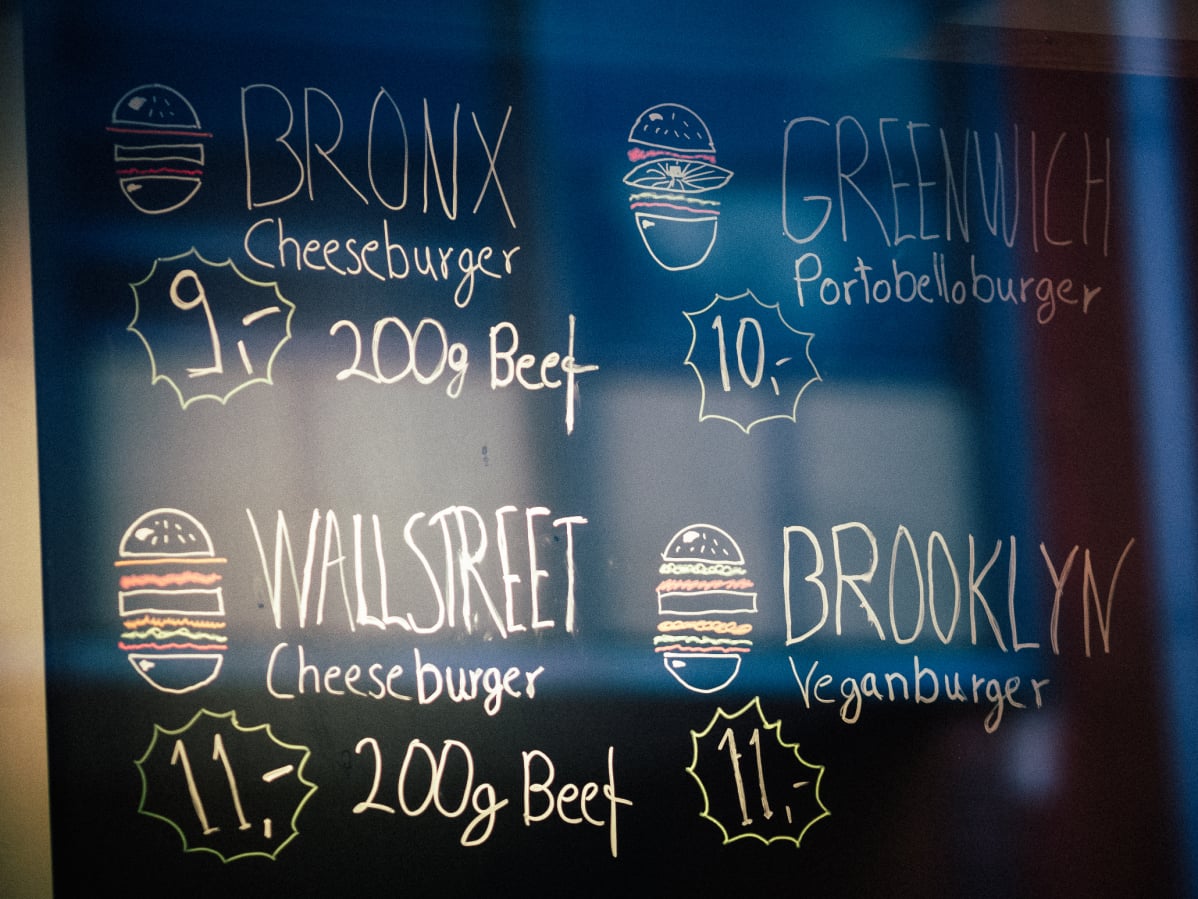 BRONX
Cheeseburger
9,-
200g Beef
GREENWICH
Portobelloburger
10,-
WALLSTREET
Cheeseburger
11,-
200g Beef
BROOKLYN
Veganburger
11,-